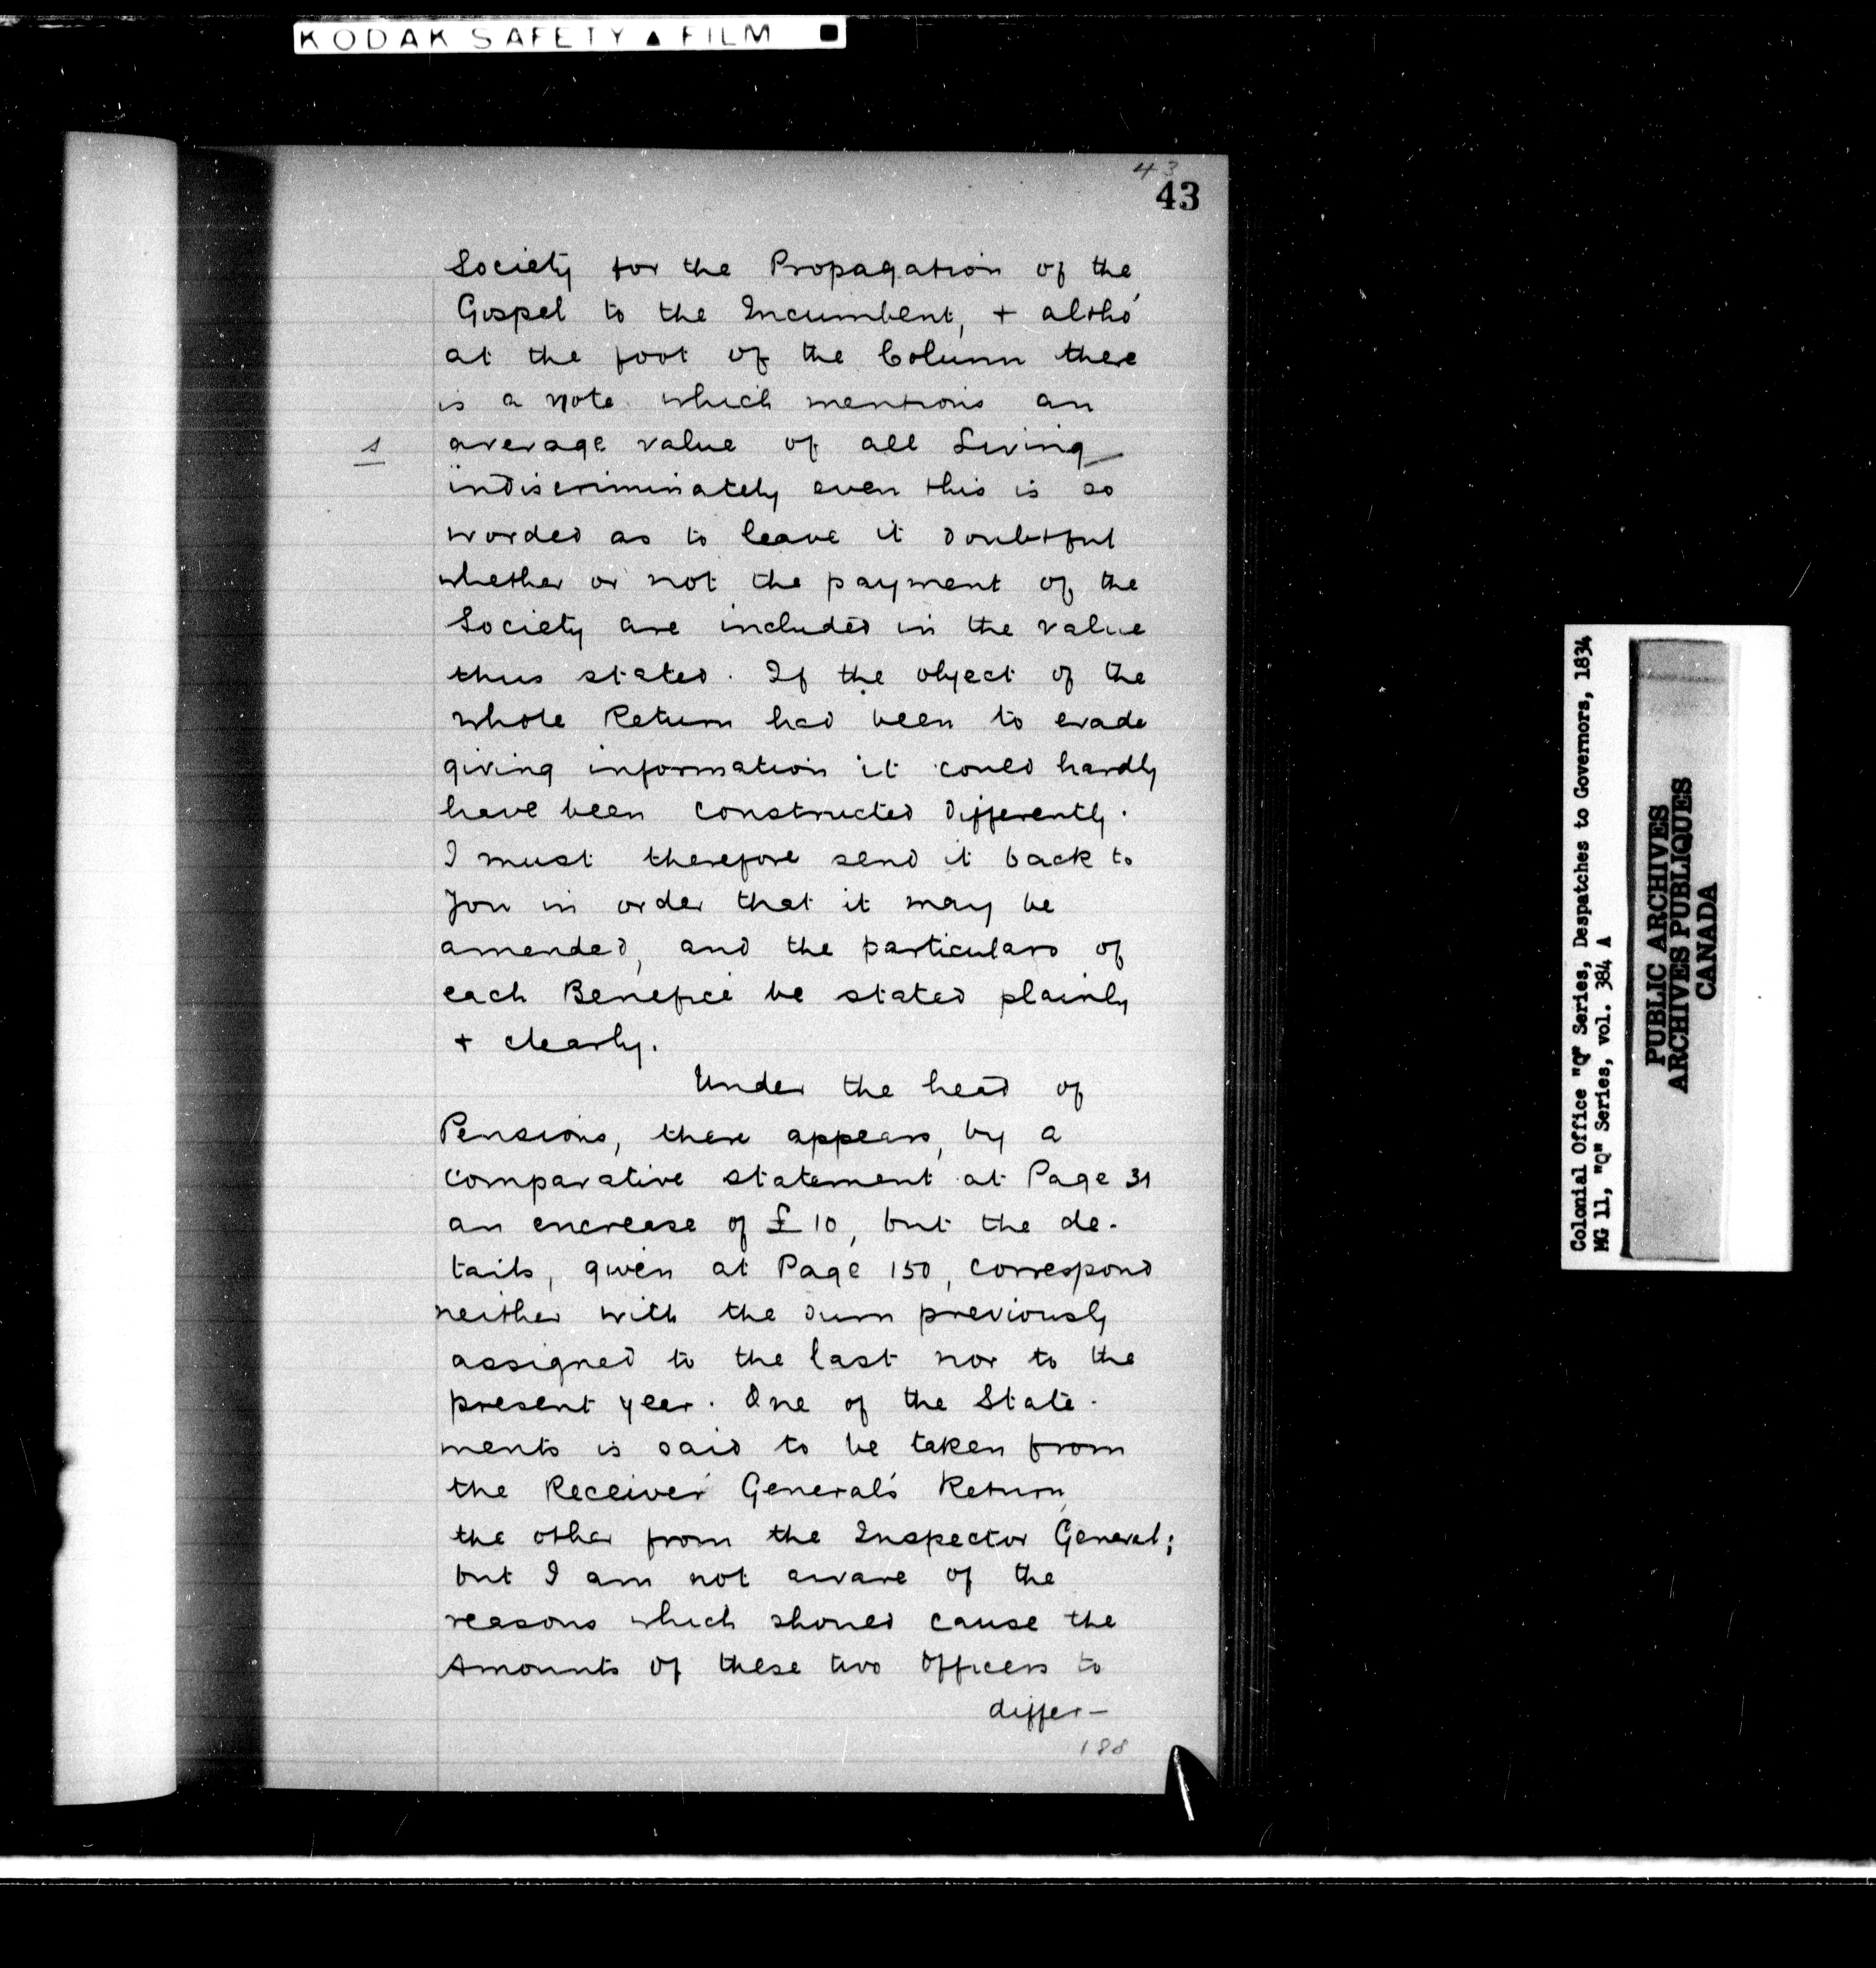 KODAK SAFETY ▲ FILM ■
43
43
Society for the Propagation of the
Gospel to the Incumbent, + altho'
at the foot of the Column there
is a note which mentions an
s average value of all Living
indiscriminately even this is so
worded as to leave it doubtful
whether or not the payment of the
Society are included in the value
thus stated. If the object of the
whole Return had been to evade
giving information it could hardly
have been constructed differently.
I must therefore send it back to
you in order that it may be
amended, and the particulars of
each Benefice be stated plainly
+ clearly.
Under the head of
Pensions, there appears, by a
comparative statement at Page 31
an encrease of £10, but the de-
tails, given at Page 150, correspond
neither with the sum previously
assigned to the last nor to the
present year. One of the State-
ments is said to be taken from
the Receiver General's Return,
the other from the Inspector General;
but I am not aware of the
reasons which should cause the
Amounts of these two Officers to
differ—
188
Colonial Office "Q" Series, Despatches to Governors, 1834
MG 11, "Q" Series, vol. 384 A
PUBLIC ARCHIVES
ARCHIVES PUBLIQUES
CANADA